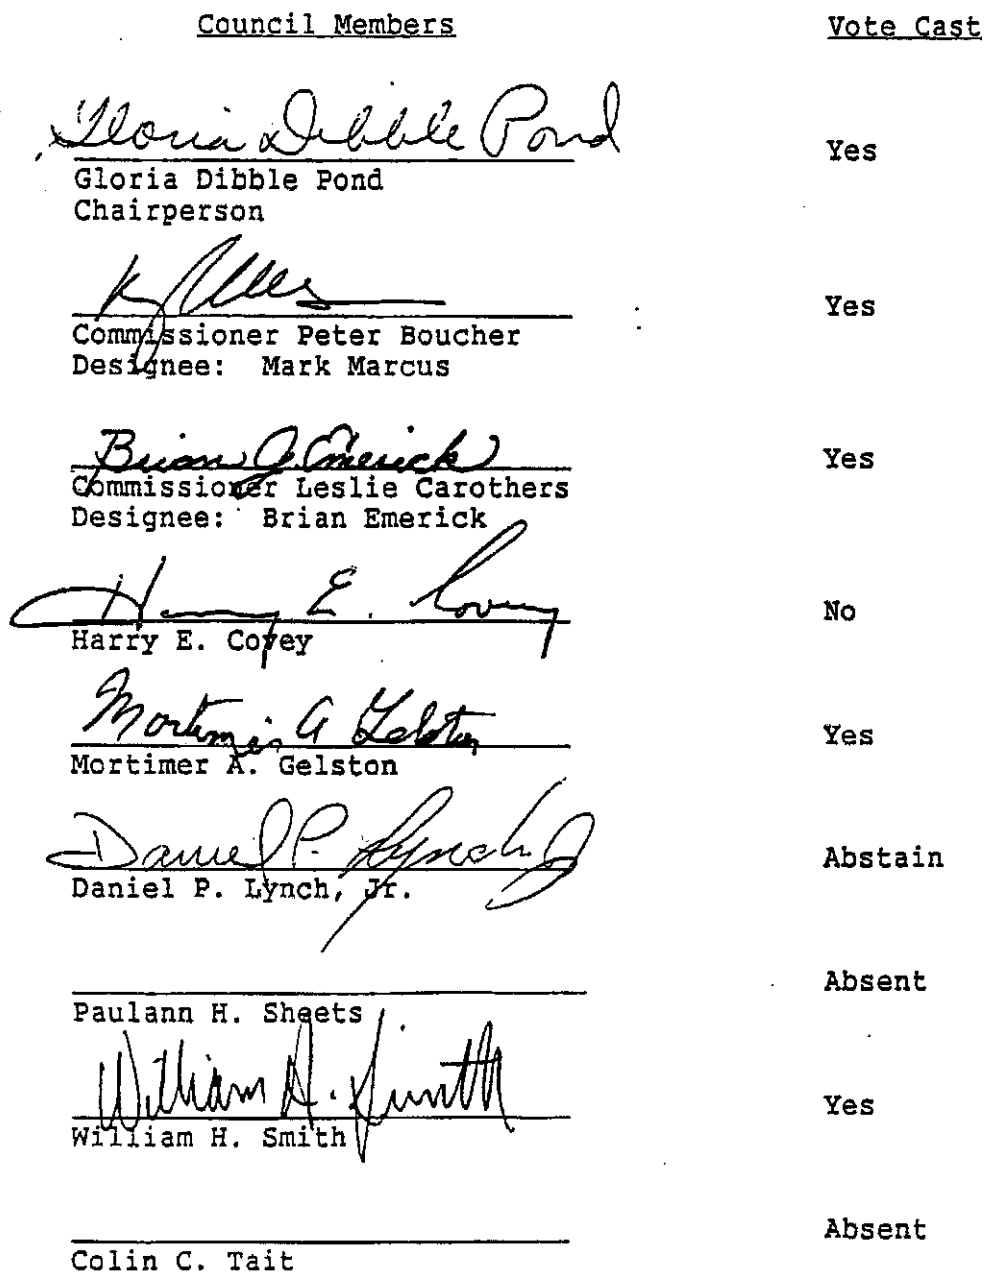 Council Members Vote Cast
Gloria Dibble Pond Yes
Gloria Dibble Pond
Chairperson
Yes
Commissioner Peter Boucher
Designee: Mark Marcus
Brian J. Emerick Yes
Commissioner Leslie Carothers
Designee: Brian Emerick
Harry E. Covey No
Harry E. Covey
Mortimer A Gelston Yes
Mortimer A. Gelston
Daniel P. Lynch Jr Abstain
Daniel P. Lynch, Jr.
Absent
Paulann H. Sheets
William H. Smith Yes
William H. Smith
Absent
Colin C. Tait